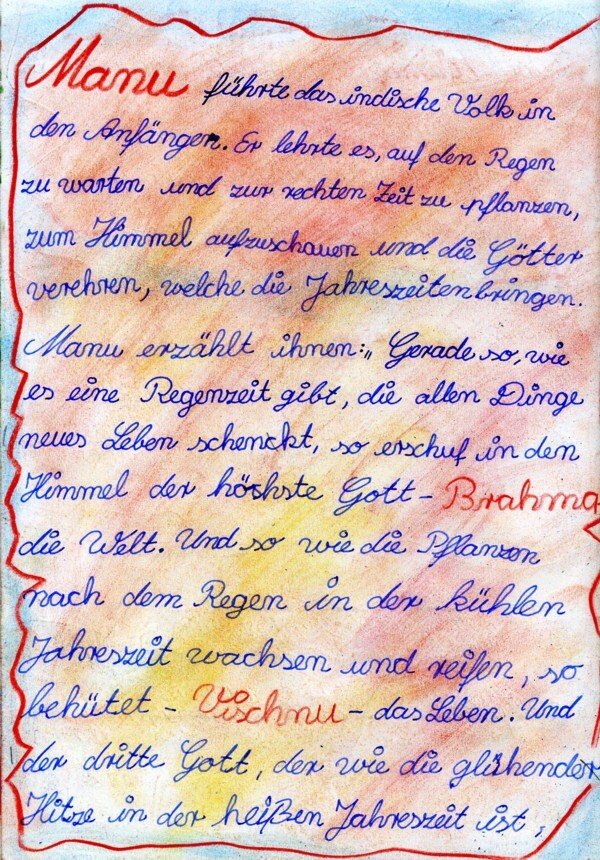 Manu führte das indische Volk in
den Anfängen. Er lehrte es, auf den Regen
zu warten und zur rechten Zeit zu pflanzen,
zum Himmel aufzuschauen und die Götter
verehren, welche die Jahreszeiten bringen.
Manu erzählt ihnen: „ Gerade so, wie
es eine Regenzeit gibt, die allen Dinge
neues Leben schenckt, so erschuf in den
Himmel der höchste Gott - Brahma
die Welt. Und so wie die Pflanzen
nach dem Regen in der kühlen
Jahreszeit wachsen und reifen, so
behütet - Vischnu - das Leben. Und
der dritte Gott, der wie die glühender
Hitze in der heißen Jahreszeit ist,